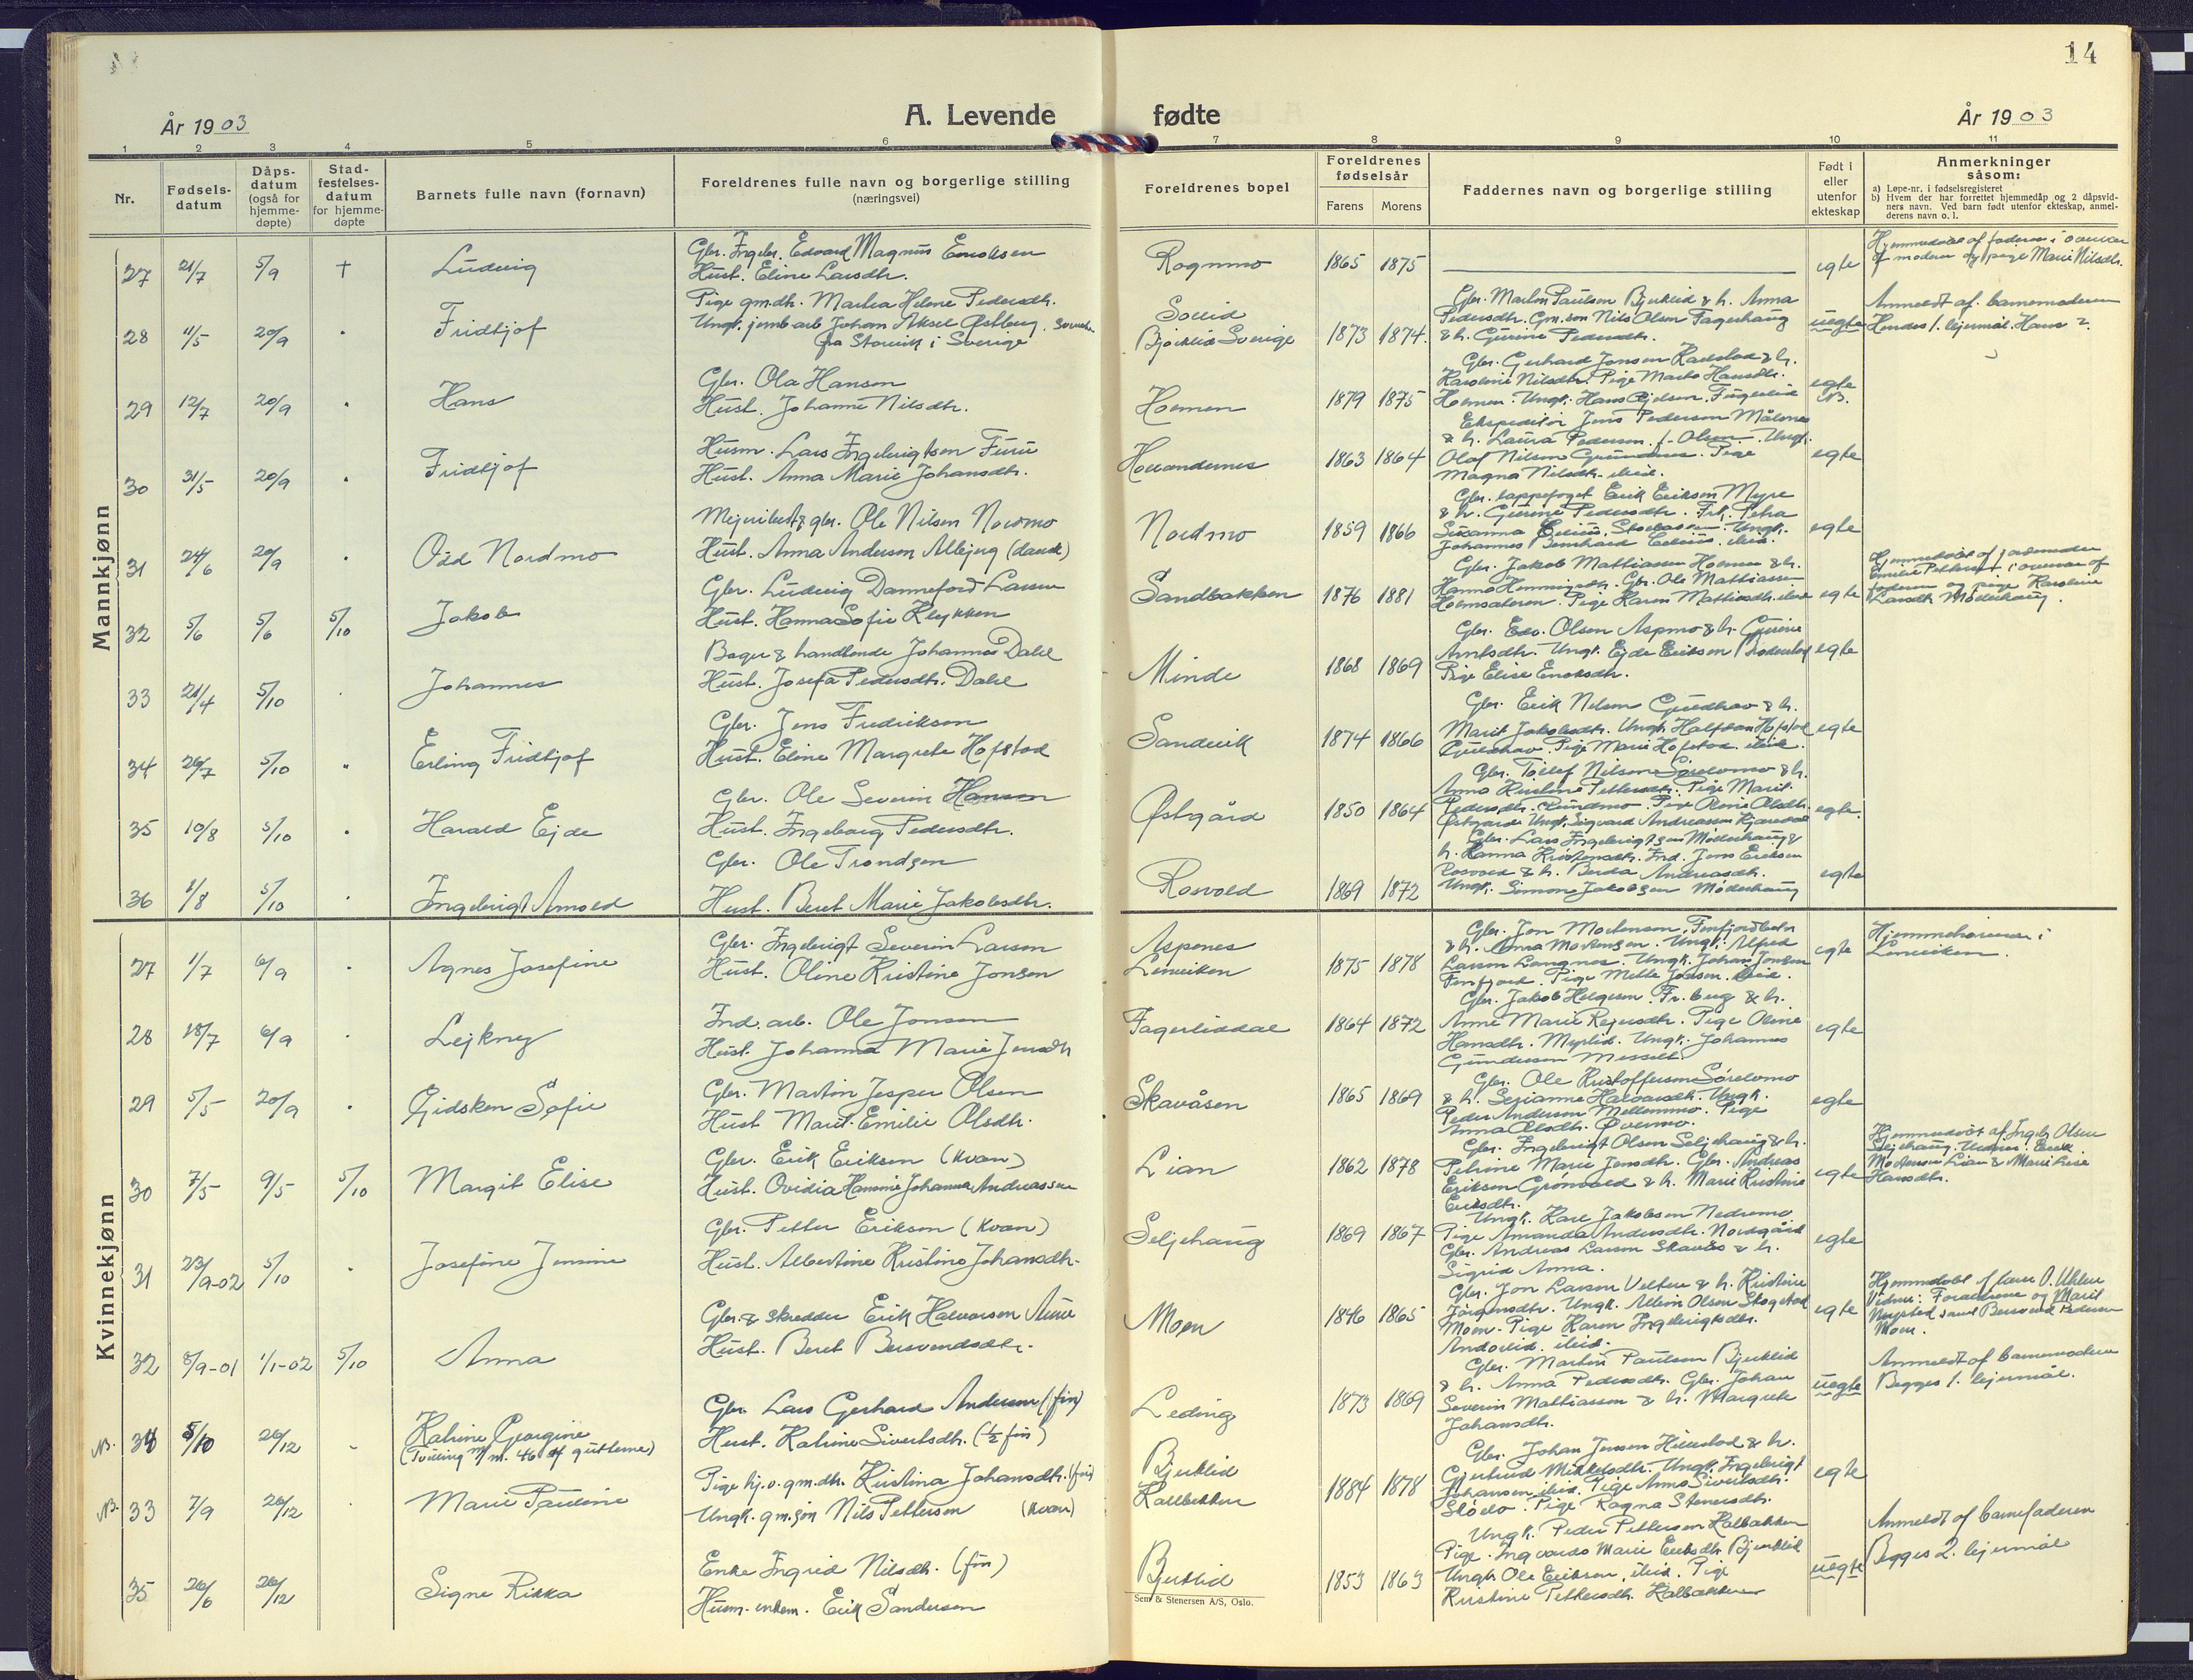 14
År 1903
A. Levende
fødte
År 1903
1 2 3 4 5 6 7 8 9 10 11
Nr.
Fødsels-
datum
Dåps-
datum
(også for
hjemme-
døpte)
Stad-
festelses-
datum
for hjemme-
døpte
Barnets fulle navn (fornavn)
Foreldrenes fulle navn og borgerlige stilling
(næringsvei)
Foreldrenes bopel
Foreldrenes
fødselsår
Farens Morens
Faddernes navn og borgerlige stilling
Født i
eller
utenfor
ekteskap
Anmerkninger
såsom:
a) Løpe-nr. i fødselsregisteret
b) Hvem der har forrettet hjemmedåp og 2 dåpsvid-
ners navn. Ved barn født utenfor ekteskap, anmel-
derens navn o. l.
Mannkjønn
27 21/7 5/9 † Ludvig
Gbr. Ingebr. Edvard Magnus Enoksen
Hust. Eline Larsdtr.
Rognmo 1865 1875 egte
Hjemmedøbt af faderen i overvær
af moderen og pige Marie Nilsdtr.
28 11/5 20/9 " Fridtjof
Pige gm.dtr. Martha Helene Pedersdtr.
Ungk. jernb.arb. Johan Aksel Østberg, svensk
fra Storvik i Sverige
Solid
Bjørklid Sverige 1873 1874
Gbr. Martin Paulsen Bjerklid & h. Anna
Pedersdtr. Gm.søn Nils Olsen Fagerhaug
& h. Gurine Pedersdtr.
uegte
Anmeldt af barnemoderen
Hendes 1. lejermål. Hans 2.
29 12/7 20/9 " Hans
Gbr. Ola Hansen
Hust. Johanne Nilsdtr.
Holmen 1879 1875
Gbr. Gerhard Jonsen
Karoline Nilsdtr. Pige Marta Hansdtr.
Holmen. Ungk. Hans
egte
NB.
30 31/5 20/9 " Fridtjof
Husm. Lars Ingebrigtsen Furu
Hust. Anna Marie Johansdtr.
1863 1864
Ekspeditør Jens Pedersen Målsnes
& h. Laura Pedersen f. Olsen. Ungk.
Olaf Nilsen Pige
Magna Nilsdtr. ibid.
egte
31 24/6 20/9 " Odd Nordmo
Mejeribest. & gbr. Ole Nilsen Nordmo
Hust. Anna Andersen Albjerg (dansk)
Nordmo 1859 1866
Gbr. lappefoged Erik Eriksen Myre
& h. Gurine Pedersdtr. Frk. Petra
Susanna Ungk.
Johannes Bernhard ibid.
egte
32 5/6 5/6 5/10 Jakob
Gbr. Ludvig Danneford Larsen
Hust. Hanna Sofie Klykken
Sandbakken 1876 1881
Gbr. Jakob Mathiassen Holmen & h.
Hanna Henningsdtr. Gbr. Ole Mathiassen
Pige Karen Mathiasdtr. ibid.
egte
Hjemmedøbt af jordemoder
Emilie Pettersen i overvær af
faderen og pige Karoline
Larsdtr. Moderhaug.
33 21/4 5/10 " Johannes
Bager & handlende Johannes Dahl
Hust. Josefa Pedersdtr. Dahl
Minde 1868 1869
Gbr. Edv. Olsen Aspmo & h. Gurine
Arntsdtr. Ungk. Ejde Eriksen
Pige Elise Enoksdtr.
egte
34 26/7 5/10 " Erling Fridtjof
Gbr. Jens Fredriksen
Hust. Eline Margrete Hofstad
Sandvik 1874 1866
Gbr. Erik Nilsen Guldhav & h.
Marit Jakobsdtr. Ungk. Halfdan Hofstad
Guldhav. Pige Marie Hofstad ibid.
egte
35 10/8 5/10 " Harald Ejde
Gbr. Ole Severin Hansen
Hust. Ingeborg Pedersdtr.
Østgård 1850 1864
Gbr. Tollef Nilsen Sørelvmo & h.
Anna Kristine Pettersdtr. Pige Marit
Pedersdtr. Rundmo. Pige Oline Olsdtr.
Østgård. Ungk. Sigvard Andreassen
egte
36 1/8 5/10 " Ingebrigt Arnold
Gbr. Ole Trondsen
Hust. Beret Marie Jakobsdtr.
Rosvold 1869 1872
Gbr. Lars Ingebrigtsen Moderhaug &
h. Hanna Kristensdtr. Ind. Jens Eriksen
Rosvold & h. Berda Andreasdtr.
Ungk. Simon Jakobsen Moderhaug
egte
Kvinnekjønn
27 1/7 6/9 " Agnes Josefine
Gbr. Ingebrigt Severin Larsen
Hust. Oline Kristine Jonsen
Aspenes
Lenviken 1875 1878
Gbr. Jon Mortensen, Finfjordbotn
& h. Anna Mortensen. Ungk. Alfred
Larsen Langnes. Ungk. Johan Jonsen
Finfjord. Pige Mille Jonsen. ibid.
egte
Hjemmehørende i
Lenviken.
28 18/7 6/9 " Lejkny
Ind. arb. Ole Jonsen
Hust. Johanna Marie Jensdtr
Fagerliddal 1864 1872
Gbr. Jakob Helgesen Fr.berg & h.
Anne Marie Rejersdtr. Pige Oline
Hansdtr. Myrlid. Ungk. Johannes
Gundersen Messelt.
egte
29 5/5 20/9 " Gidsken Sofie
Gbr. Martin Jesper Olsen
Hust. Marit Emilie Olsdtr.
Skavåsen 1865 1869
Gbr. Ole Kristoffersen Sørelvmo
& h. Serianne Halvarsdtr. Ungk.
Peder Andersen Mellemmo. Pige
Anna Olsdtr. Øvermo.
egte
30 7/5 9/5 5/10 Margit Elise
Gbr. Erik Eriksen (kvæn)
Hust. Ovidia Hammine Johanna Andreassen
Lian 1862 1878
Gbr. Ingebrigt Olsen Seljehaug & h.
Petrine Marie Jensdtr. Gbr. Andreas
Eriksen Grønvold & h. Marie Kristine
Eriksdtr.
egte
Hjemmedøbt af Ingeb. Olsen
Seljehaug. Vidner: Erik
Mortensen Lian & Marie Lise
Hansdtr.
31 23/9-02 5/10 " Josefine Jensine
Gbr. Petter Eriksen (kvæn)
Hust. Albertine Kristine Johansdtr.
Seljehaug 1869 1867
Ungk. Karl Jakobsen Nedremo
Pige Amanda Andersdtr. Nordgård
Gbr. Andreas Larsen Skavås & h.
Sigrid Anna.
egte
32 8/9-01 1/1-02 5/10 Anna
Gbr. & skredder Erik Halvorsen Aune
Hust. Beret Bersvendsdtr.
Moen 1846 1865
Gbr. Jon Larsen Velten & h. Kristine
Jørgensdtr. Ungk. Albin Olsen Skogstad
Moen. Pige Karen Ingebrigtsdtr.
ibid.
egte
Hjemmedøbt af lærer O. Uhlen
Vidner: Forældrene og Marit
Nysted samt Bersvend Pedersen
Moen.
NB. 34 5/10 26/12 " Katrine Georgine
(Tvilling m/ nr. 46 af guttene)
Gbr. Lars Gerhard Andersen (fin)
Hust. Katrine Sivertsdtr. (1/2 fin)
Leding 1873 1869
Gbr. Martin Paulsen Bjerklid
& h. Anna Pedersdtr. Gbr. Johan
Severin Mathiassen & h. Margrete
Johansdtr.
uegte
Anmeldt af barnemoderen
Begges 1. lejermål.
NB. 33 7/9 26/12 " Marie Pauline
Pige hj. o. gm.dtr. Kristina Johansdtr. (fin)
Ungk. gm.søn Nils Pettersen (kvæn)
Bjerklid
Kalbakken 1884 1878
Gbr. Johan Jensen & h.
Gjertrud Mikkelsdtr. Ungk. Ingebrigt
Johansen ibid. Pige Anna Sivertsdtr.
Pige Ragna Stenersdtr.
egte
35 26/6 26/12 Signe Rikka
Enke Ingrid Nilsdtr. (fin)
Husm. enkem. Erik Sandersen
Bjerklid 1853 1863
Ungk. Peder Pettersen Kalbakken
Pige Ingvarda Marie Eriksdtr. Bjerklid
Ungk. Ole Eriksen, ibid. Pige
Kristine Pettersdtr. Kalbakken
uegte
Anmeldt af barnefaderen
Begges 2. lejermål
Sem & Stenersen A/S, Oslo.